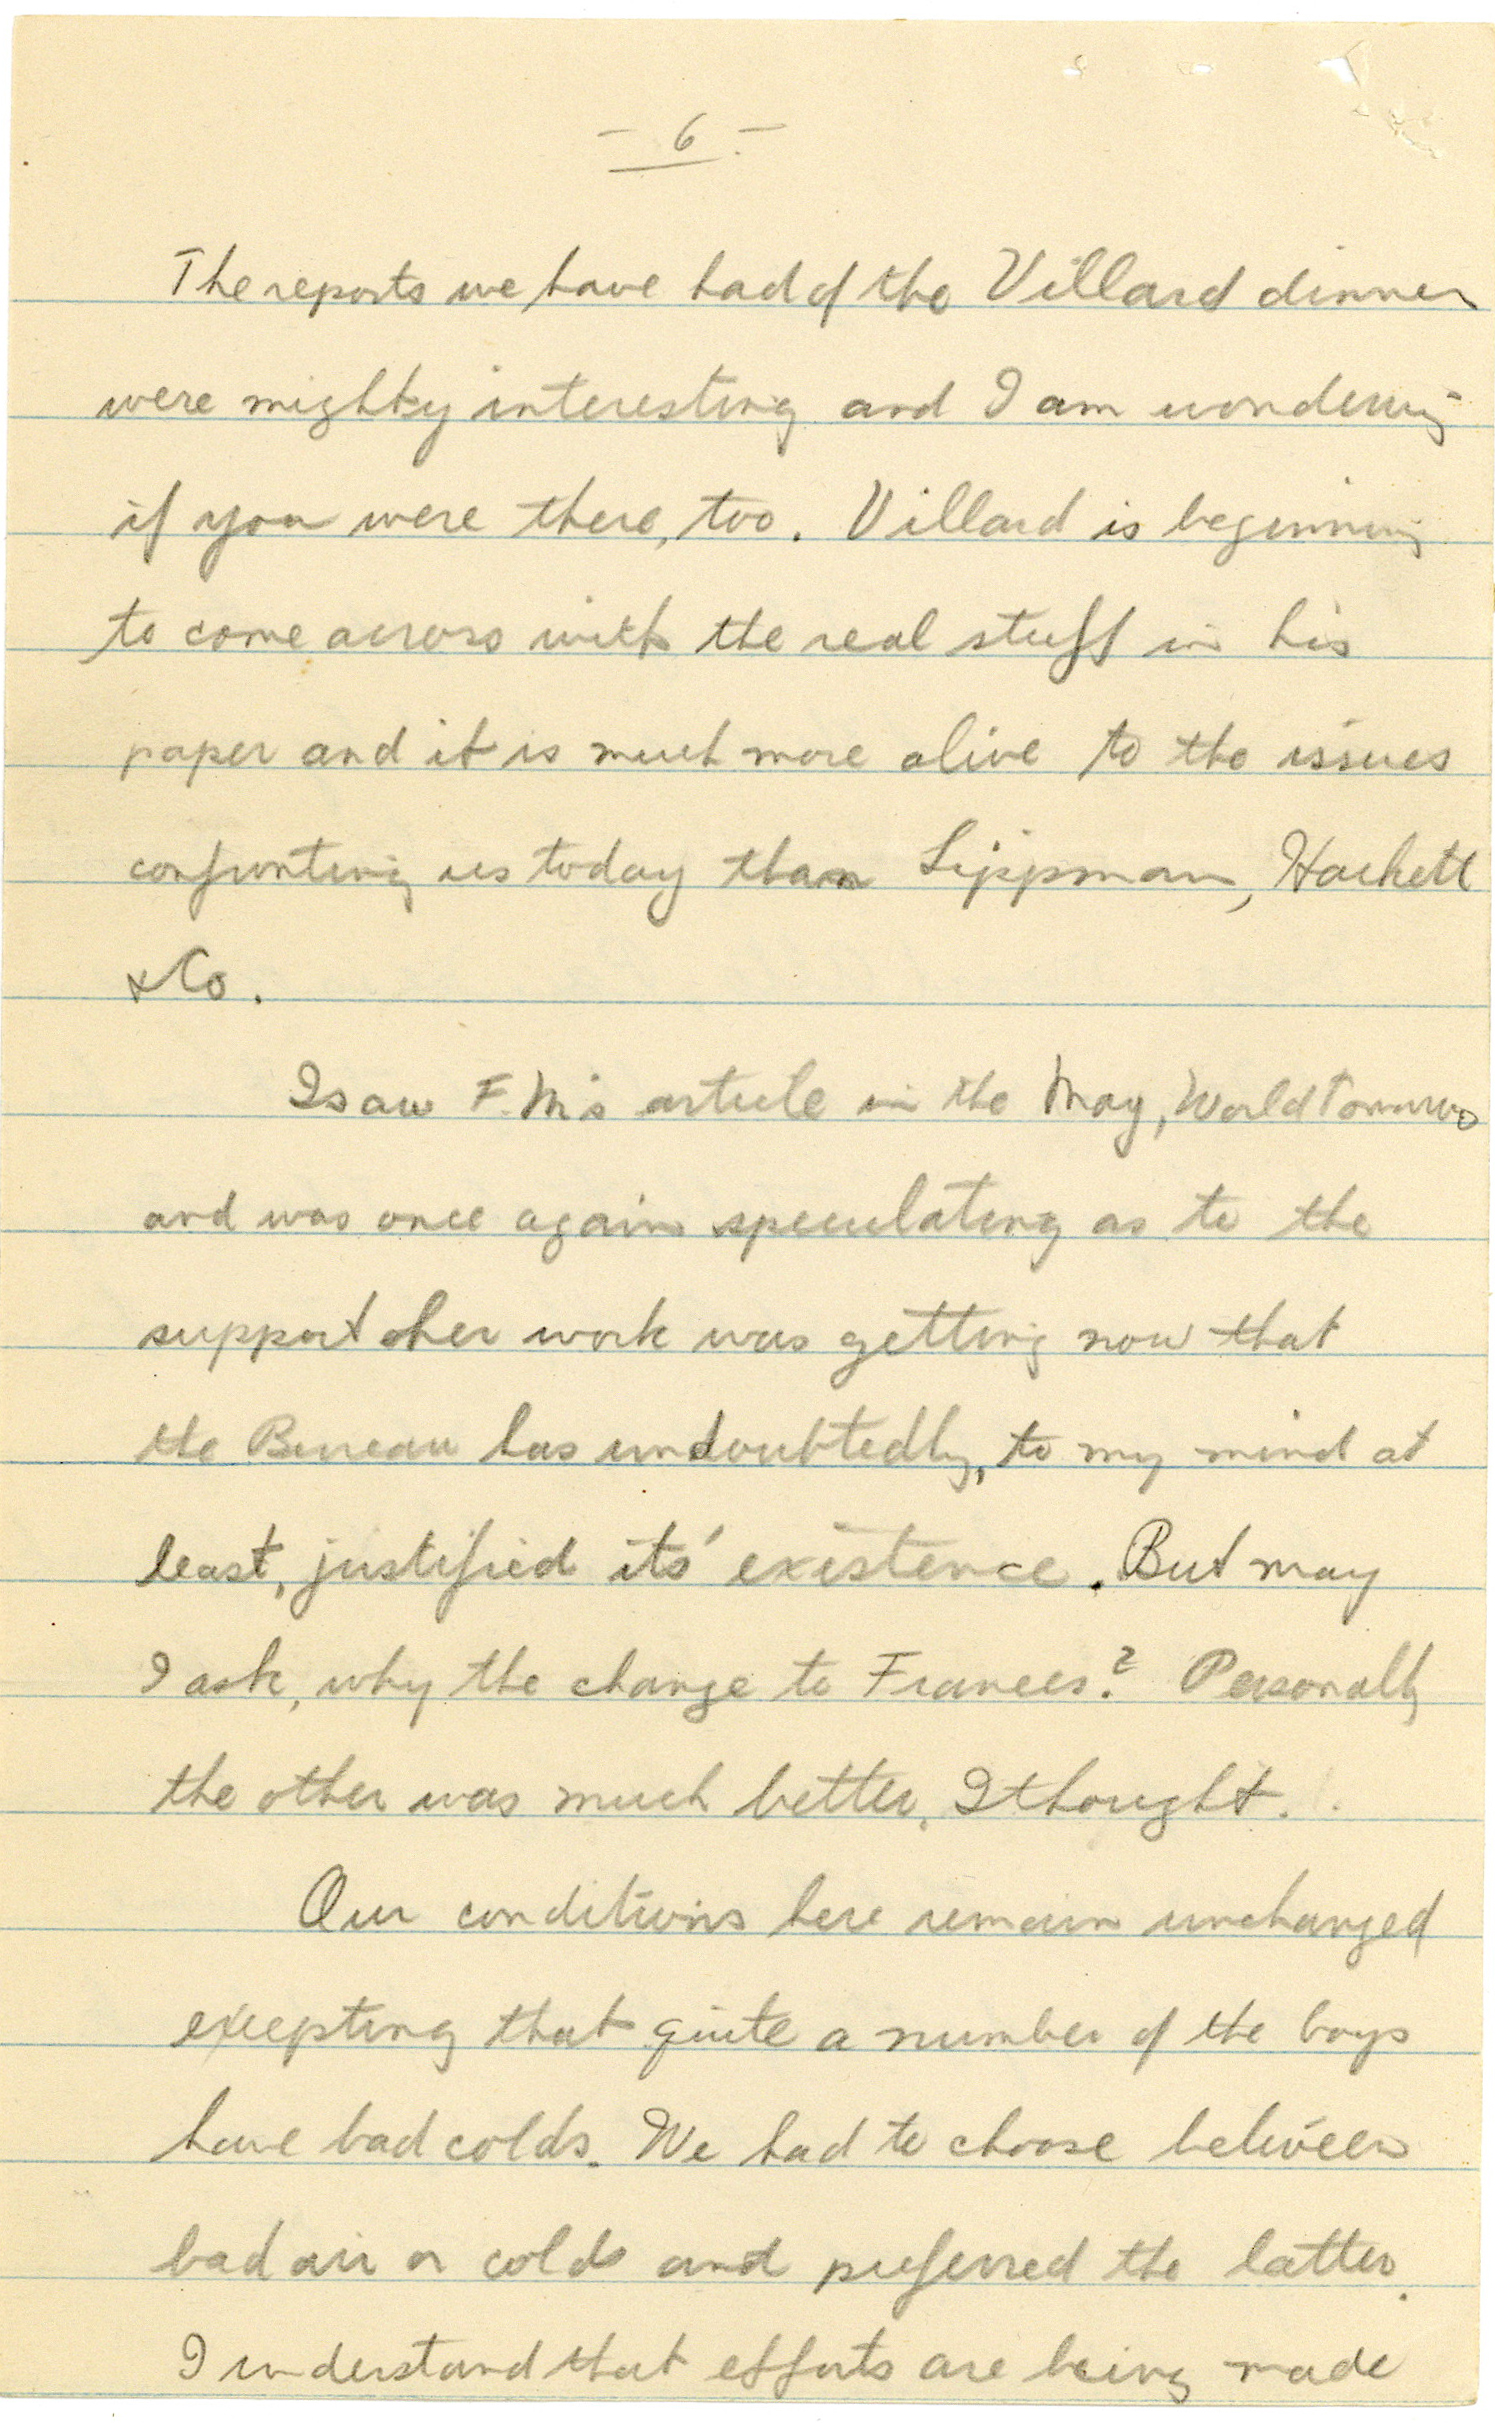 - 6 -
The reports we have had of the Villard dinner
were mighty interesting and I am wondering
if you were there, too. Villard is beginning
to come across with the real stuff in his
paper and it is much more alive to the issues
confronting us today than Lippman, Hackett
& Co.
I saw F. M's article in the May, World Tomorrow
and was once again speculating as to the
support her work was getting now that
the Bureau has undoubtedly, to my mind at
least, justified its' existence. But may
I ask, why the change to Frances? Personally
the other was much better, I thought.
Our conditions here remain unchanged
excepting that quite a number of the boys
have bad colds. We had to choose between
bad air or colds and preferred the latter.
I understand that efforts are being made